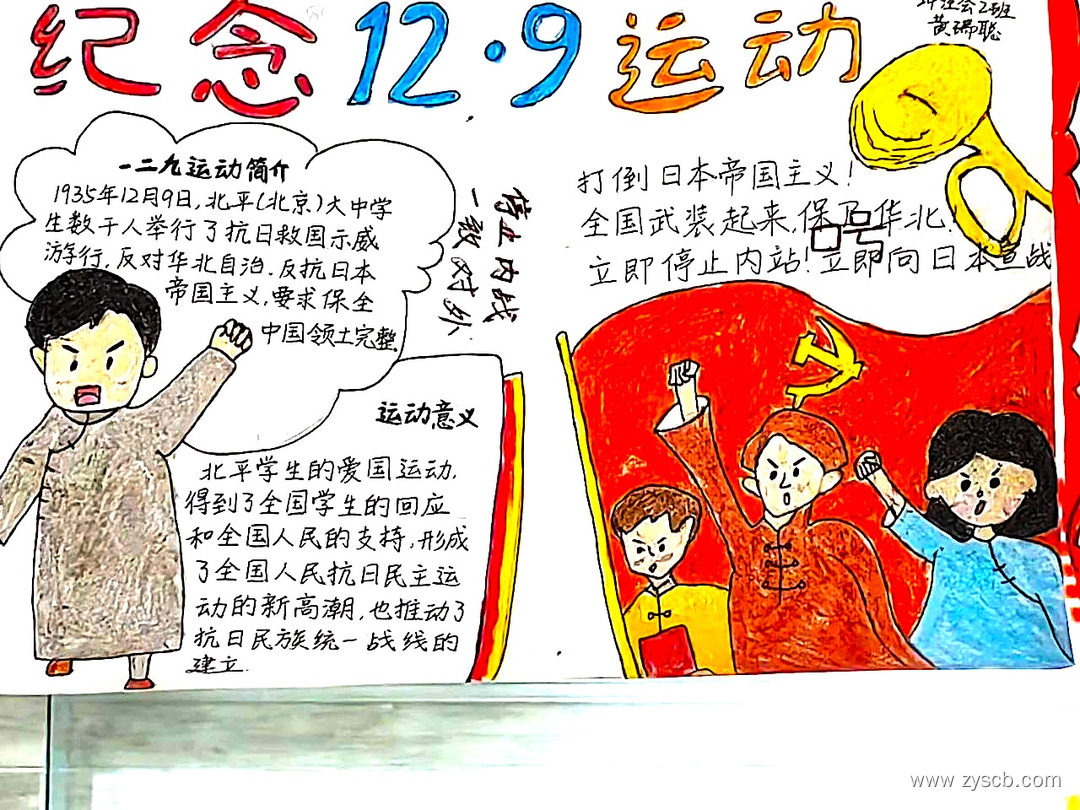 纪念12·9运动
24社会2班
黄瑞聪
一二九运动简介
1935年12月9日,北平(北京)大中学
生数千人举行了抗日救国示威
游行,反对华北自治.反抗日本
帝国主义,要求保全
中国领土完整
停止内战
一致对外
打倒日本帝国主义!
全国武装起来,保卫华北.
立即停止内站!立即向日本宣战
运动意义
北平学生的爱国运动,
得到了全国学生的回应
和全国人民的支持,形成
了全国人民抗日民主运
动的新高潮,也推动了
抗日民族统一战线的
建立.
www.zyscb.com